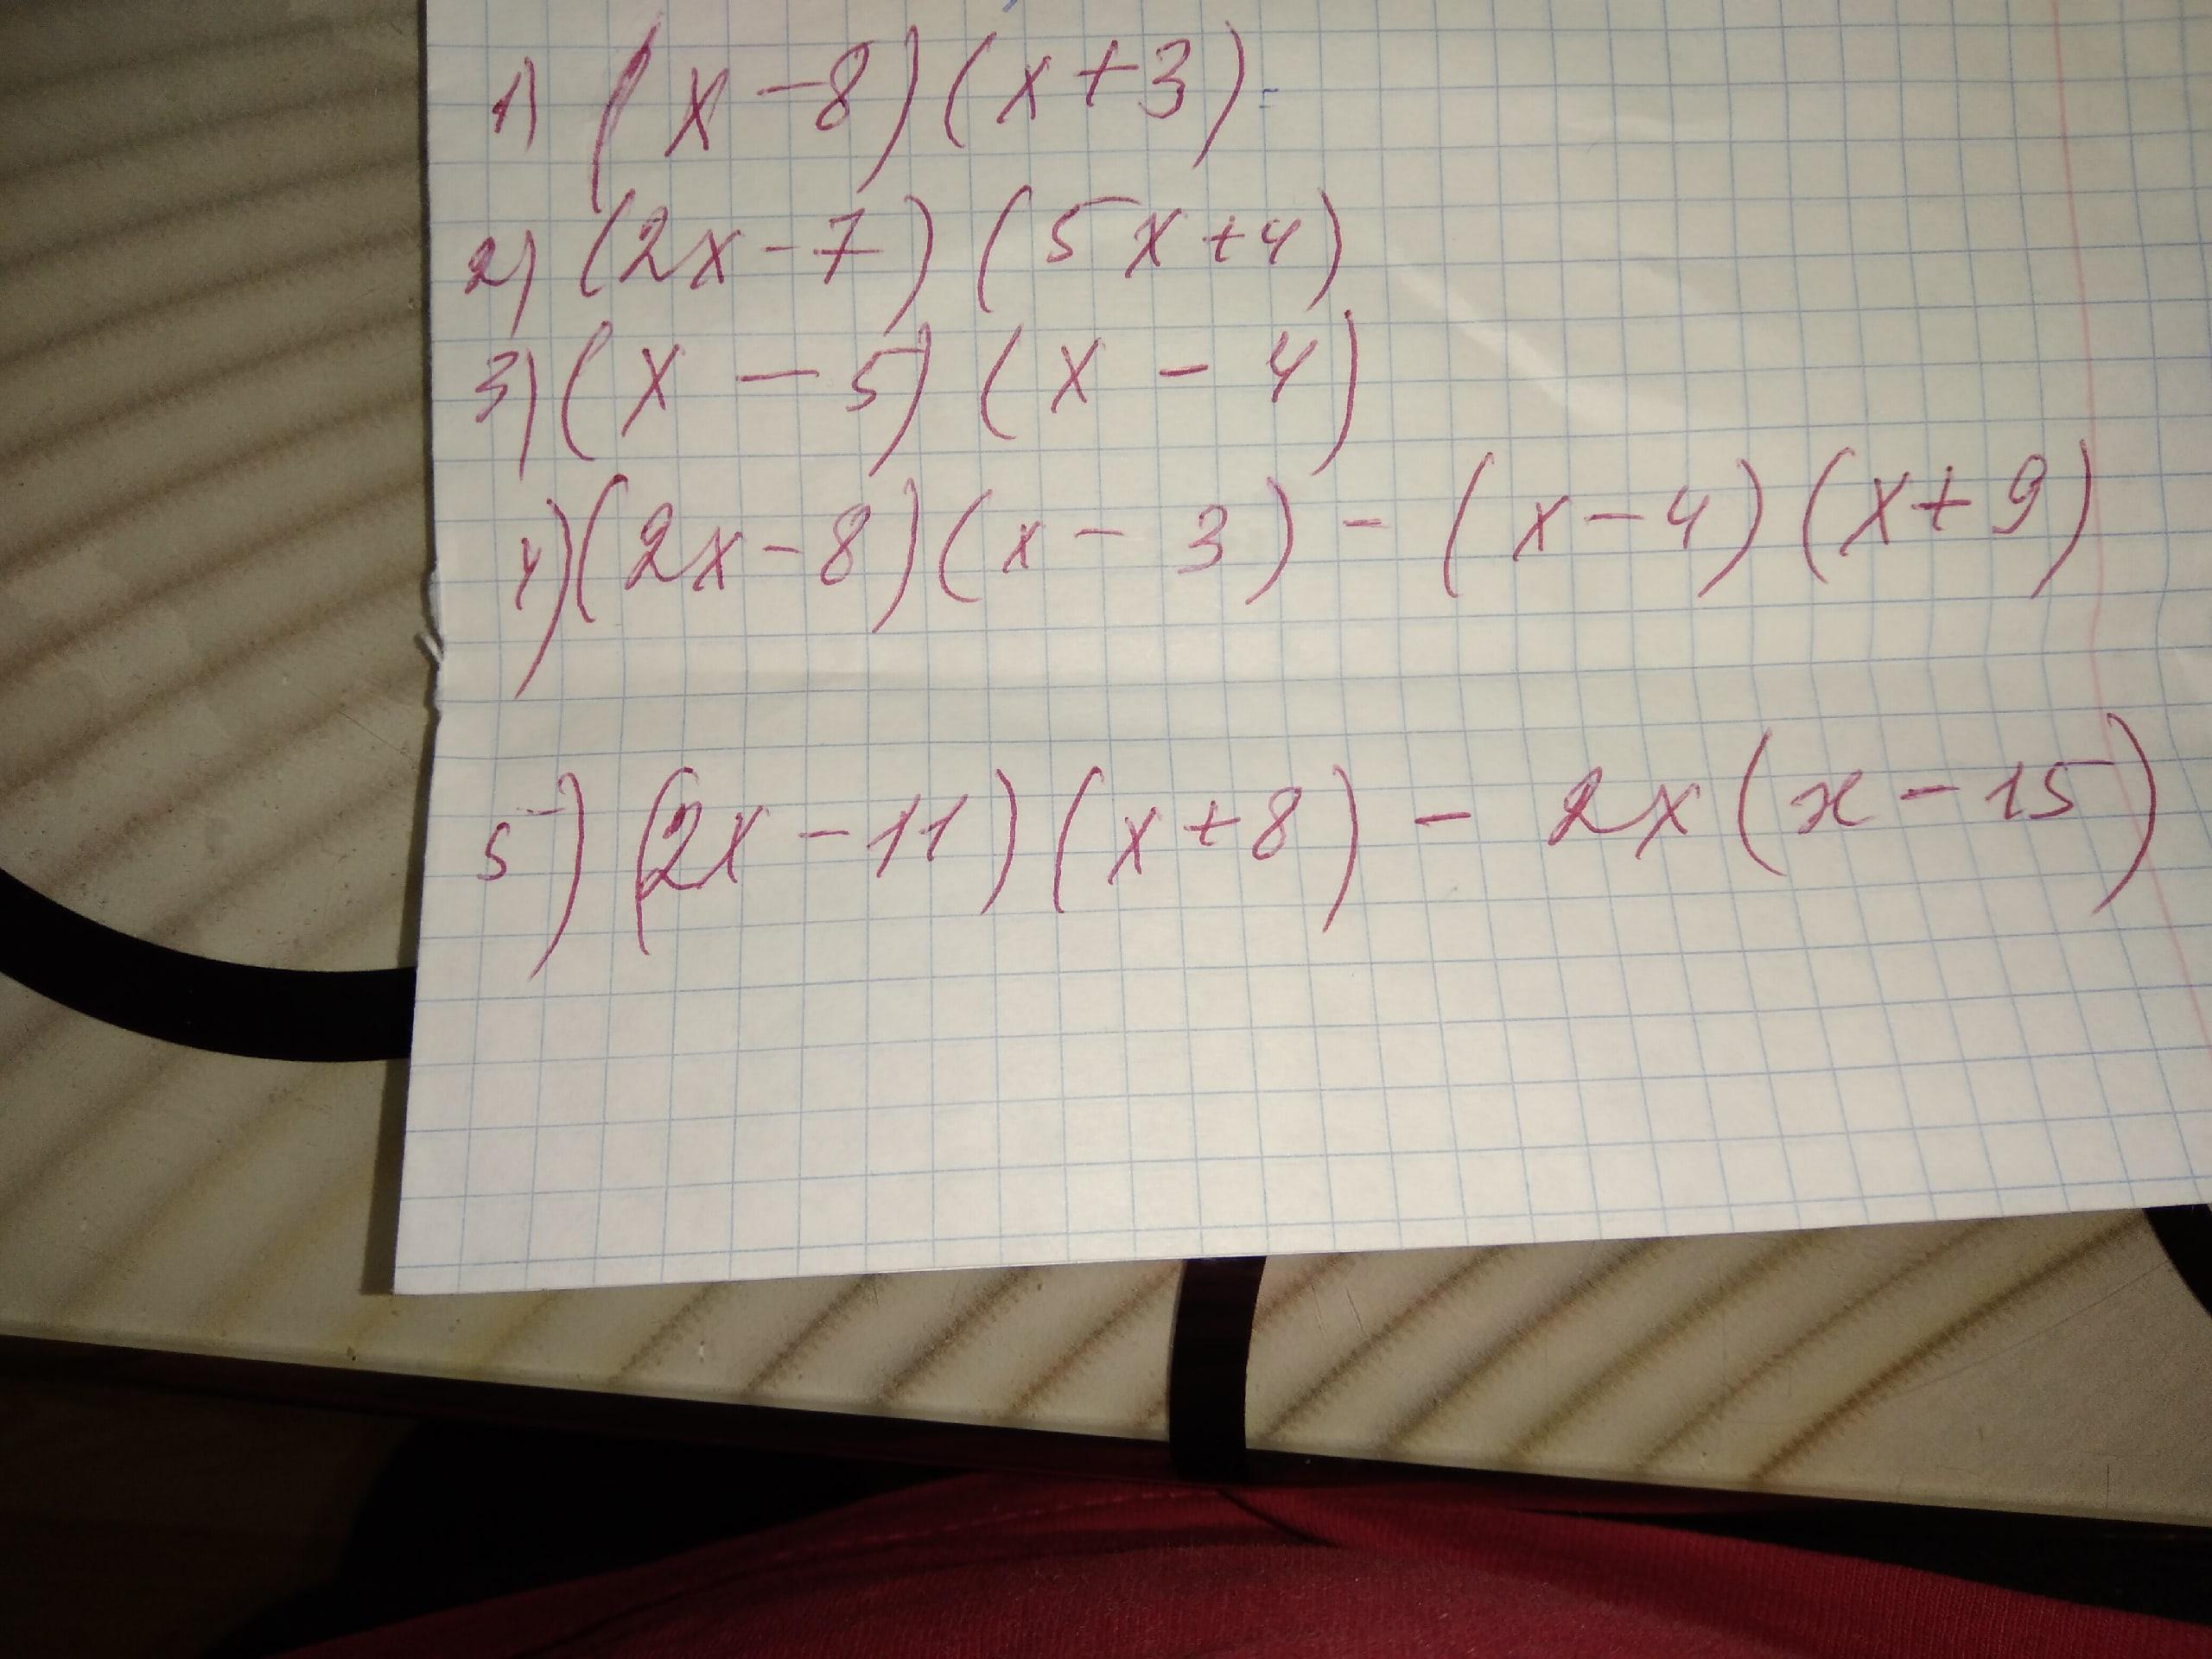 1) (x-8)(x+3)=
2) (2x-7)(5x+4)
3) (x-5)(x-4)
4) (2x-8)(x-3)-(x-4)(x+9)
5) (2x-11)(x+8)-2x(x-15)